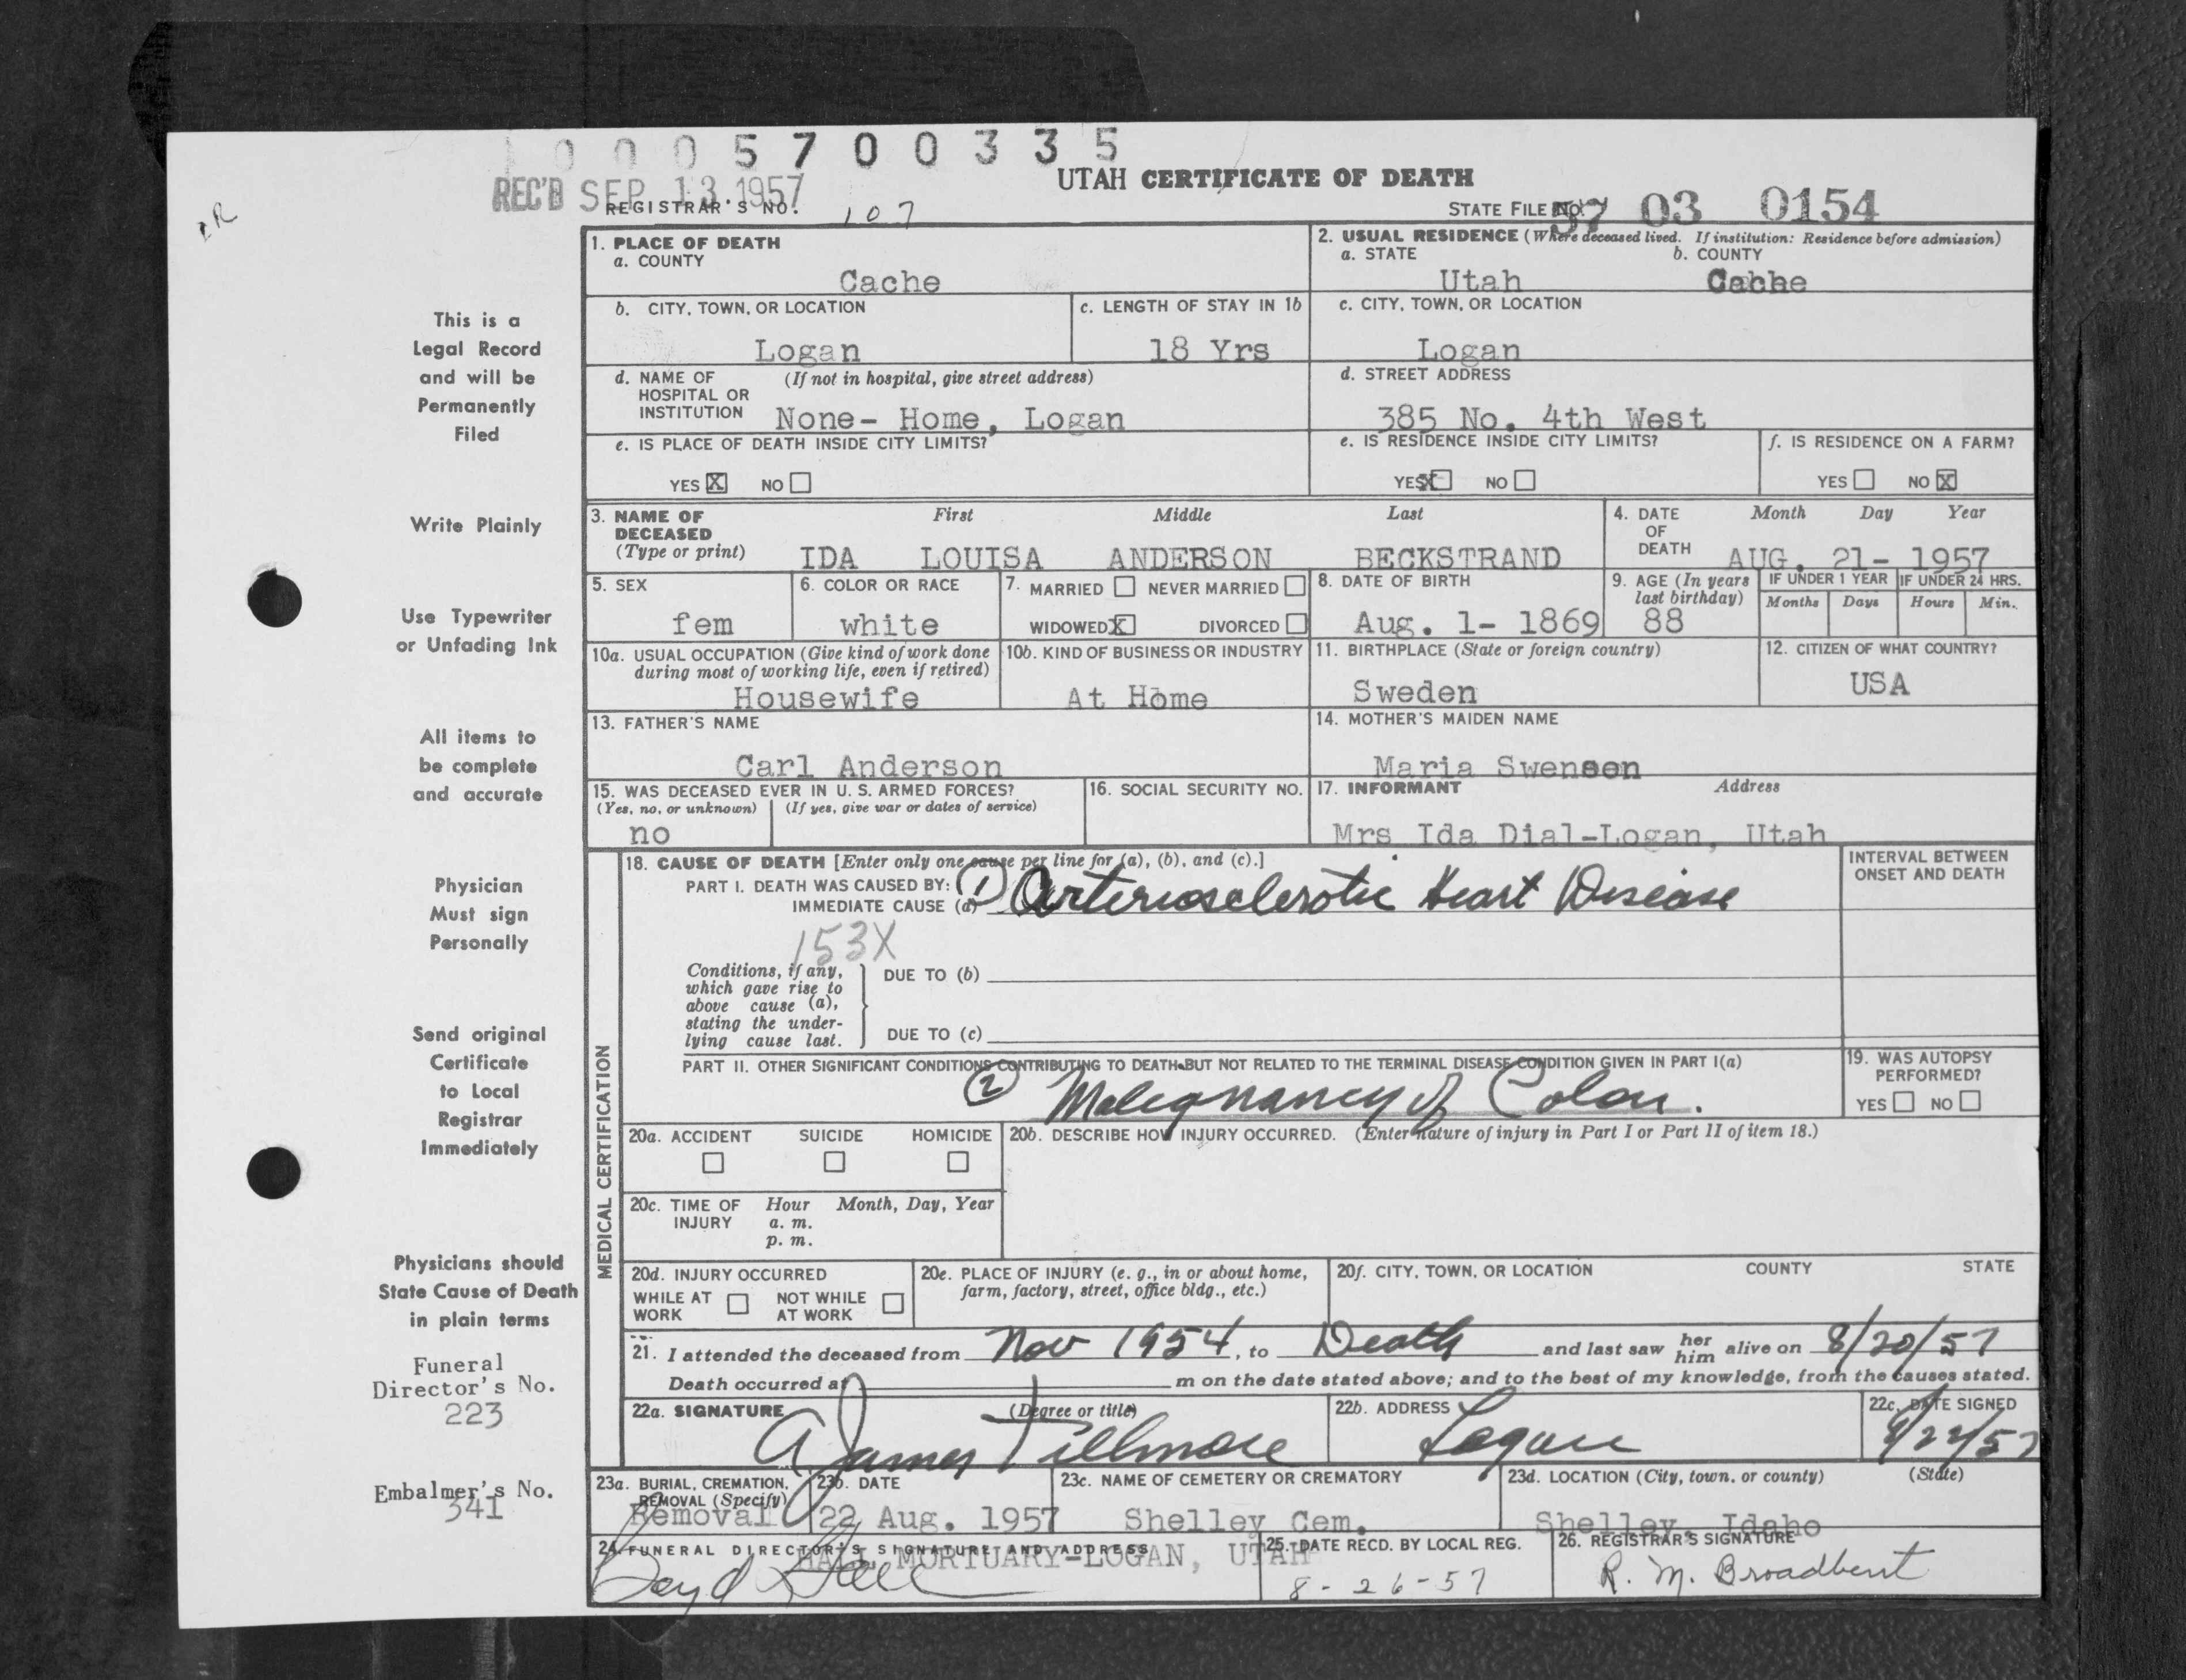 1 0 0 0 5 7 0 0 3 3 5
REC'D SEP 13 1957
UTAH CERTIFICATE OF DEATH
REGISTRAR'S NO. 107
STATE FILE NO. 57 03 0154
1. PLACE OF DEATH
a. COUNTY
Cache
2. USUAL RESIDENCE (Where deceased lived. If institution: Residence before admission)
a. STATE b. COUNTY
Utah Cache
b. CITY, TOWN, OR LOCATION
Logan
c. LENGTH OF STAY IN 1b
18 Yrs
c. CITY, TOWN, OR LOCATION
Logan
d. NAME OF (If not in hospital, give street address)
HOSPITAL OR
INSTITUTION None- Home, Logan
d. STREET ADDRESS
385 No. 4th West
e. IS PLACE OF DEATH INSIDE CITY LIMITS?
YES X NO
e. IS RESIDENCE INSIDE CITY LIMITS?
YES X NO
f. IS RESIDENCE ON A FARM?
YES NO X
3. NAME OF First Middle Last
DECEASED
(Type or print) IDA LOUISA ANDERSON BECKSTRAND
4. DATE Month Day Year
OF
DEATH AUG. 21- 1957
5. SEX
fem
6. COLOR OR RACE
white
7. MARRIED NEVER MARRIED
WIDOWED X DIVORCED
8. DATE OF BIRTH
Aug. 1- 1869
9. AGE (In years
last birthday)
88
IF UNDER 1 YEAR IF UNDER 24 HRS.
Months Days Hours Min.
10a. USUAL OCCUPATION (Give kind of work done
during most of working life, even if retired)
Housewife
10b. KIND OF BUSINESS OR INDUSTRY
At Home
11. BIRTHPLACE (State or foreign country)
Sweden
12. CITIZEN OF WHAT COUNTRY?
USA
13. FATHER'S NAME
Carl Anderson
14. MOTHER'S MAIDEN NAME
Maria Swenson
15. WAS DECEASED EVER IN U. S. ARMED FORCES?
(Yes, no, or unknown) (If yes, give war or dates of service)
no
16. SOCIAL SECURITY NO.
17. INFORMANT Address
Mrs Ida Dial-Logan, Utah
MEDICAL CERTIFICATION
18. CAUSE OF DEATH [Enter only one cause per line for (a), (b), and (c).]
PART I. DEATH WAS CAUSED BY:
IMMEDIATE CAUSE (a) (1) Arteriosclerotic Heart Disease
INTERVAL BETWEEN
ONSET AND DEATH
153X
Conditions, if any,
which gave rise to
above cause (a),
stating the under-
lying cause last.
DUE TO (b)
DUE TO (c)
PART II. OTHER SIGNIFICANT CONDITIONS CONTRIBUTING TO DEATH BUT NOT RELATED TO THE TERMINAL DISEASE CONDITION GIVEN IN PART I(a)
(2) Malignancy of Colon.
19. WAS AUTOPSY
PERFORMED?
YES NO
20a. ACCIDENT SUICIDE HOMICIDE
20b. DESCRIBE HOW INJURY OCCURRED. (Enter nature of injury in Part I or Part II of item 18.)
20c. TIME OF Hour Month, Day, Year
INJURY a. m.
p. m.
20d. INJURY OCCURRED
WHILE AT NOT WHILE
WORK AT WORK
20e. PLACE OF INJURY (e. g., in or about home,
farm, factory, street, office bldg., etc.)
20f. CITY, TOWN, OR LOCATION COUNTY STATE
21. I attended the deceased from Nov 1954, to Death and last saw her him alive on 8/20/57
Death occurred at m on the date stated above; and to the best of my knowledge, from the causes stated.
22a. SIGNATURE (Degree or title)
A James Fillmore
22b. ADDRESS
Logan
22c. DATE SIGNED
8/22/57
23a. BURIAL, CREMATION,
REMOVAL (Specify)
Removal
23b. DATE
22 Aug. 1957
23c. NAME OF CEMETERY OR CREMATORY
Shelley Cem.
23d. LOCATION (City, town, or county) (State)
Shelley, Idaho
24. FUNERAL DIRECTOR'S SIGNATURE AND ADDRESS
HALL MORTUARY-LOGAN, UTAH
Boyd Hall
25. DATE RECD. BY LOCAL REG.
8-26-57
26. REGISTRAR'S SIGNATURE
R. M. Broadbent
This is a
Legal Record
and will be
Permanently
Filed
Write Plainly
Use Typewriter
or Unfading Ink
All items to
be complete
and accurate
Physician
Must sign
Personally
Send original
Certificate
to Local
Registrar
Immediately
Physicians should
State Cause of Death
in plain terms
Funeral
Director's No.
223
Embalmer's No.
341